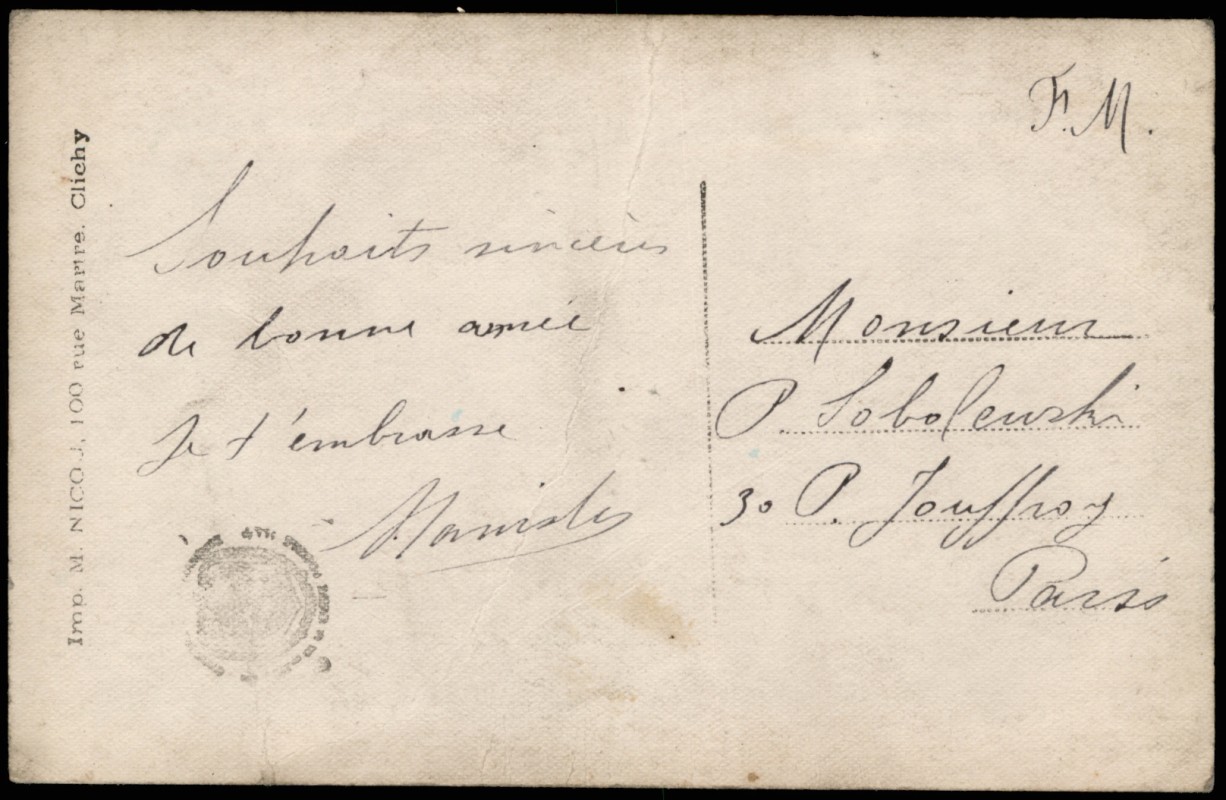 Imp. M. NICOJ, 100 rue Martre. Clichy
F.M.
Souhaits sincères
de bonne année
Je t'embrasse
Monsieur
P. Sobolewski
30 P. Jouffroy
Paris